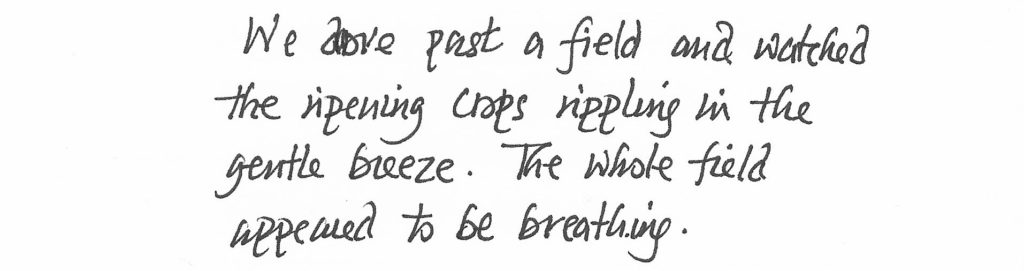 We drove past a field and watched
the ripening crops rippling in the
gentle breeze. The whole field
appeared to be breathing.